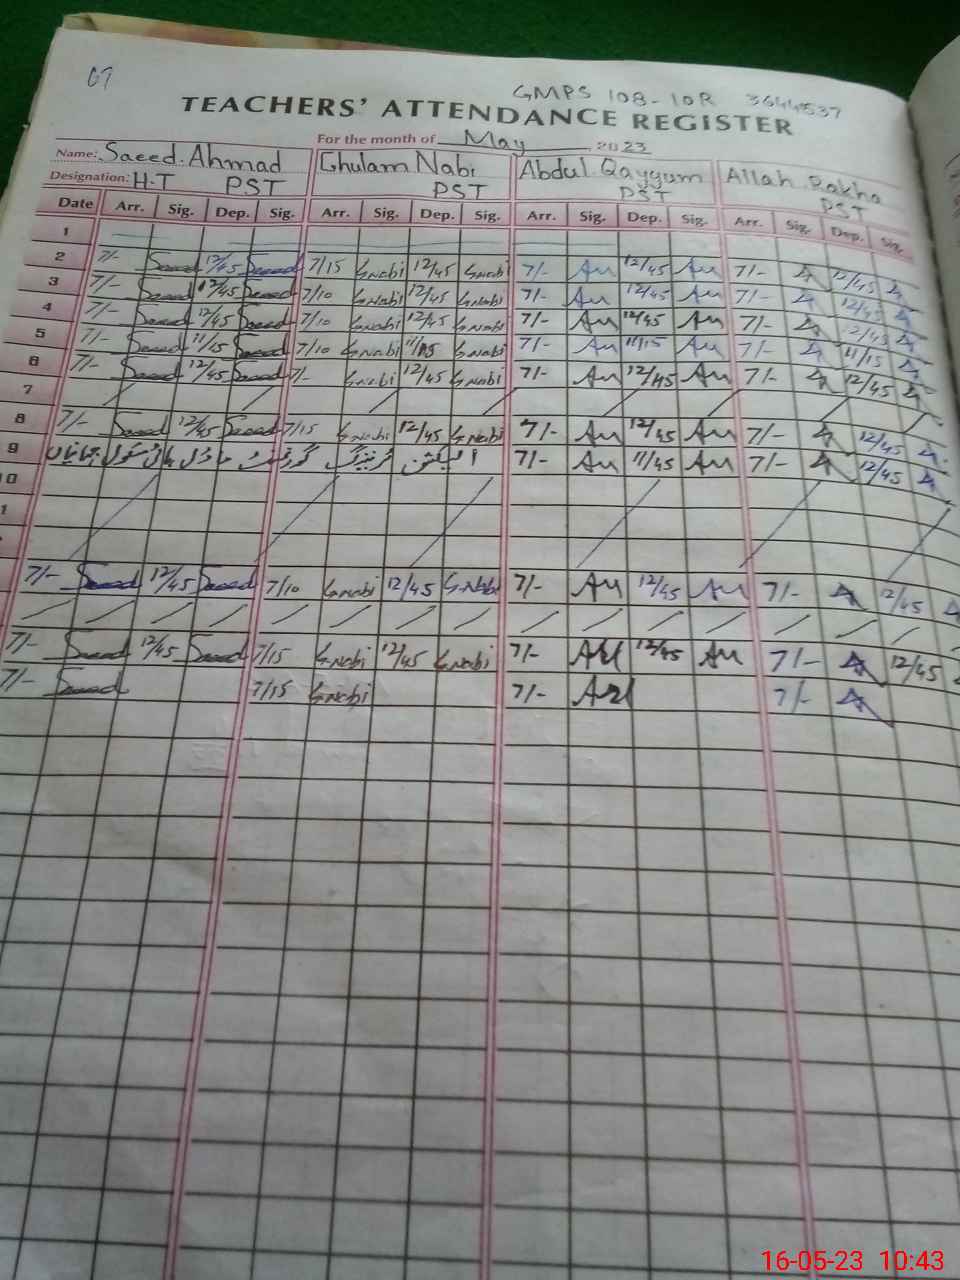 07
GMPS 108-10R 36441537
TEACHERS' ATTENDANCE REGISTER
For the month of May, 2023
Name: Saeed Ahmad Ghulam Nabi Abdul Qayyum Allah Rakha
Designation: H.T PST PST PST PST
Date Arr. Sig. Dep. Sig. Arr. Sig. Dep. Sig. Arr. Sig. Dep. Sig. Arr. Sig. Dep. Sig.
1
2 7/- Saeed 12/45 Saeed 7/15 GNabi 12/45 GNabi 7/- 12/45 7/- 12/45
3 7/- Saeed 12/45 Saeed 7/10 GNabi 12/45 GNabi 7/- 12/45 7/- 12/45
4 7/- Saeed 12/45 Saeed 7/10 GNabi 12/45 GNabi 7/- 12/45 7/- 12/45
5 7/- Saeed 11/15 Saeed 7/10 GNabi 11/15 GNabi 7/- 11/15 7/- 11/15
6 7/- Saeed 12/45 Saeed 7/- GNabi 12/45 GNabi 7/- 12/45 7/- 12/45
7
8 7/- Saeed 12/45 Saeed 7/15 GNabi 12/45 GNabi 7/- 12/45 7/- 12/45
9 الیکشن ٹریننگ گورنمنٹ ماڈل ہائی سکول جہانیاں 7/- 11/45 7/- 12/45
10
1
7/- Saeed 12/45 Saeed 7/10 GNabi 12/45 GNabi 7/- 12/45 7/- 12/45
7/- Saeed 12/45 Saeed 7/15 GNabi 12/45 GNabi 7/- 12/45 7/- 12/45
7/- Saeed 7/15 GNabi 7/- 7/-
16-05-23 10:43